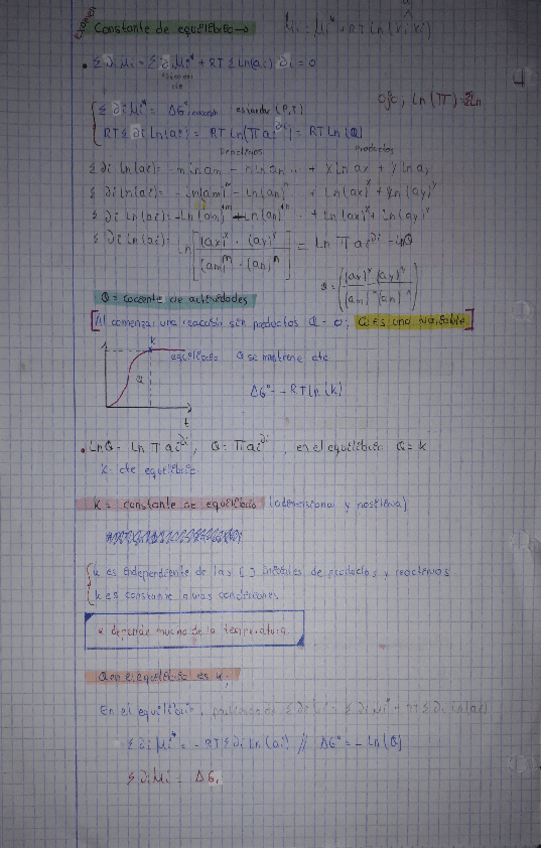 Examen
Constante de equilibrio →
μi = μi* + RT Ln (γi xi)
4
• Σ ∂i μi = Σ ∂i μi* + RT Σ Ln(ai) ∂i = 0
ojo, Ln(π) = Σln
Σ ∂i μi* = ΔG° estandar (P,T)
RT Σ ∂i Ln(ai) = RT Ln(π ai^∂i) = RT Ln(Q)
reactivos productos
Σ ∂i Ln(ai) = -m ln am - n ln an ... + x Ln ax + y Ln ay
Σ ∂i Ln(ai) = -ln(am)^m - Ln(an)^n + Ln(ax)^x + Ln(ay)^y
Σ ∂i Ln(ai) = -Ln(am)^m - Ln(an)^n + Ln(ax)^x + Ln(ay)^y
Σ ∂i Ln(ai) = Ln [(ax)^x · (ay)^y / (am)^m · (an)^n] = Ln π ai^∂i = LnQ
Q = ((ax)^x (ay)^y / (am)^m (an)^n)
Q = cociente de actividades
[Al comenzar una reacción sin productos Q = 0; Q es una variable]
k
equilibrio Q se mantiene cte
Q
ΔG° = -RT Ln(k)
t
• LnQ = Ln π ai^∂i, Q = π ai^∂i, en el equilibrio Q = k
k cte equilibrio
K = constante de equilibrio (adimensional y positiva)
k es independiente de las [ ] iniciales de productos y reactivos
k es constante a unas condiciones.
k depende mucho de la temperatura.
Q en el equilibrio es k:
En el equilibrio, Σ ∂i μi = Σ ∂i μi* + RT Σ ∂i Ln(ai)
Σ ∂i μi* = -RT Σ ∂i Ln(ai) // ΔG° = -Ln(Q)
Σ ∂i μi = ΔGr